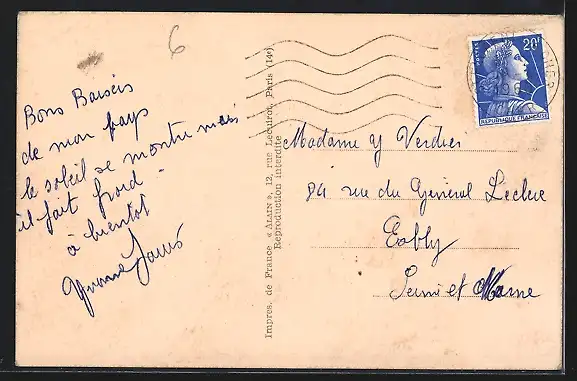 6
Bons Baisers
de mon pays
le soleil se montre mais
il fait froid -
à bientôt
Yvonne
Impres. de France « ALAIN », 12, rue Lecuirot, Paris (14e)
Reproduction interdite
POSTES 20F
REPUBLIQUE FRANÇAISE
CHER
Madame Y Verdier
84 rue du Général Leclerc
Esbly
Seine et Marne